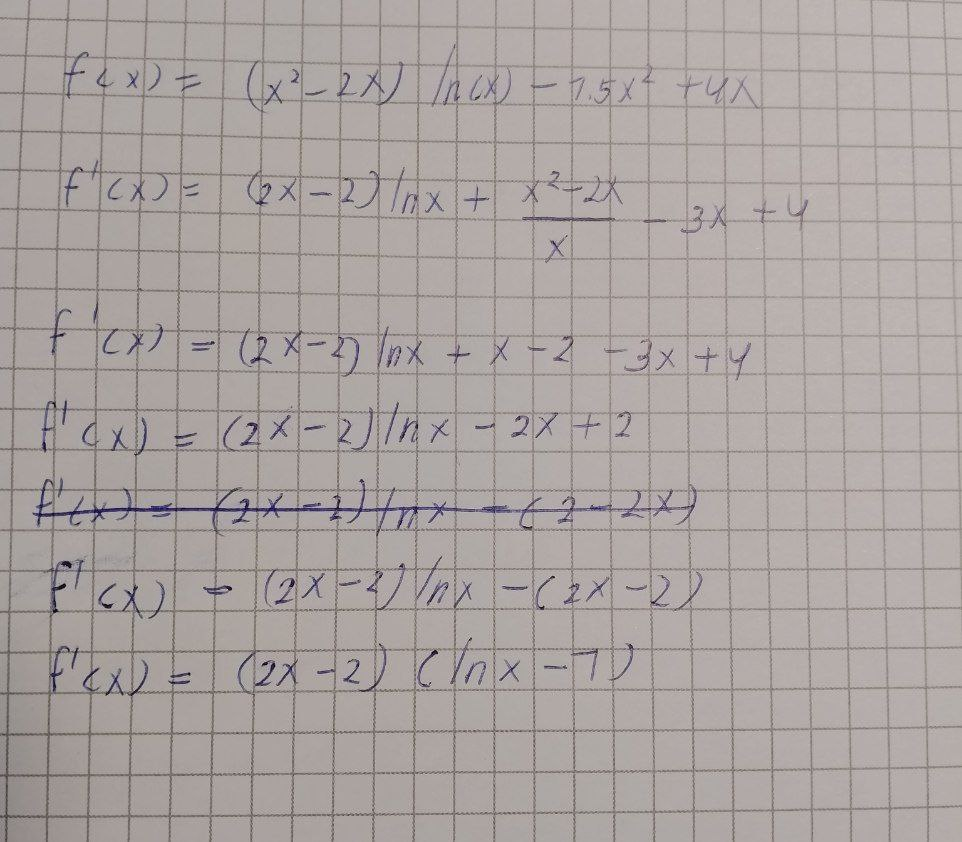 f(x) = (x² - 2x) ln(x) - 1.5x² + 4x
f'(x) = (2x - 2) lnx + (x² - 2x)/x - 3x + 4
f'(x) = (2x - 2) lnx + x - 2 - 3x + 4
f'(x) = (2x - 2) lnx - 2x + 2
f'(x) = (2x - 2) lnx - (2 - 2x)
f'(x) = (2x - 2) lnx - (2x - 2)
f'(x) = (2x - 2) (lnx - 1)